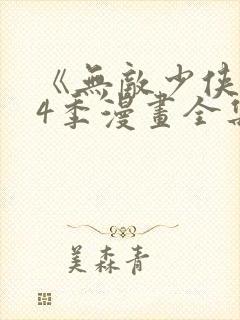 《無敵少俠
4季漫畫全集
美森青